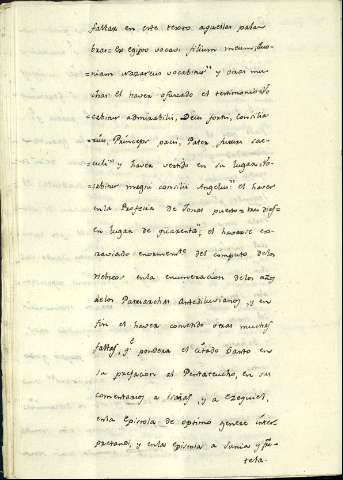 faltar en este texto aquellas pala-
bras: Ex egipto vocavi filium meum, quo-
=niam Nazareus vocabitur" y otras mu-
chas: el haver ofuscado el testimonio: Vo-
=cabitur admirabilis, Deus fortis, Consilia
=rius, Princeps pacis, Pater futuri sae-
culi" y haver vertido en su lugar: Vo-
=cabitur magni consilii Angelus" el haver
en la Profecia de Jonas puesto = tres dias =
en lugar de quarenta", el haverse ex-
traviado enormemte. del computo delos
Hebreos enla enumeracion delos años
delos Patriarchas Antediluvianos, y en
fin el haver cometido otras muchas
faltas, qe. pondera el citado Santo en
su prefacion al Pentateucho, en sus
comentarios a Isaías, y a Ezequiel,
enla Epistola de optimo genere inter
pretandi, y enlas Epistola a Sunia y Fre-
tela.